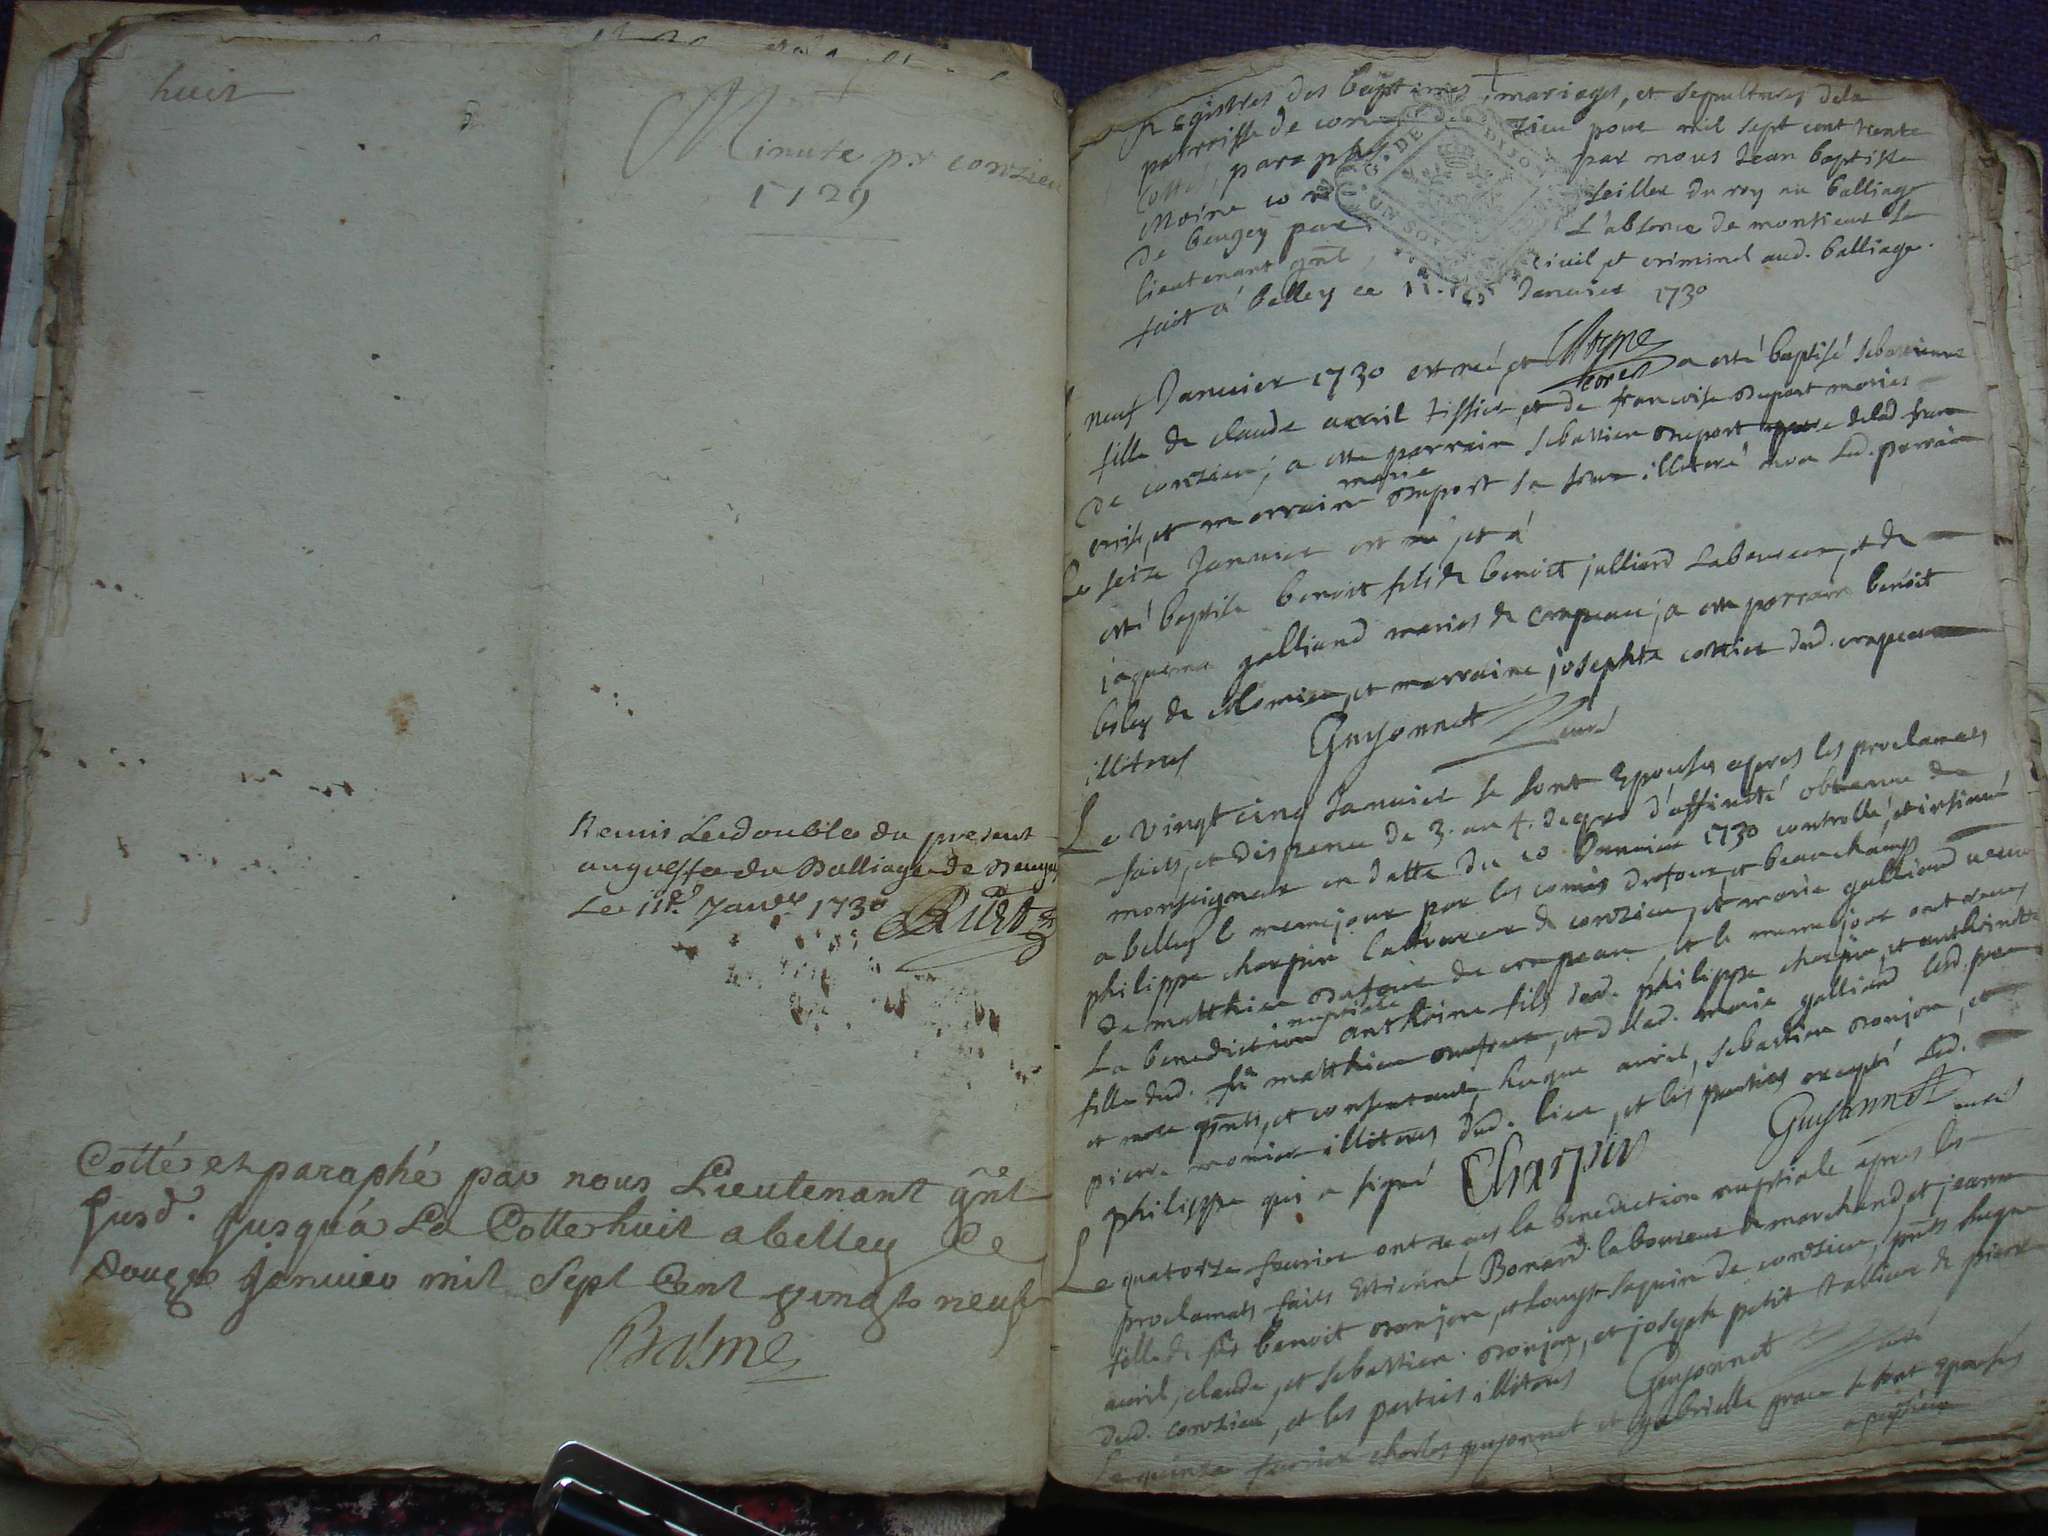 huit
Minute pr conzieu
1729
Remis Le double du present
au greffe du Balliage de Beugey
Le 11e. Janver 1730
Cotté et paraphé par nous Lieutenant gñl
susd. jusqu'à La Cotte huit a belley Ce
douze janvier mil Sept Cent vingt neuf
Balme
Registres des baptêmes, mariages, et sepultures de la
parroisse de conzieu pour mil sept cent trente
cottés, paraphés par nous Jean baptiste
Moine conseiller du roy au balliage
de beugey par l'absence de monsieur le
lieutenant gñl civil et criminel aud. balliage.
fait à belley ce 11. Janvier 1730
Moyne
neuf Janvier 1730 est née et a esté baptisé sebastienne
fille de claude avril tissier, et de francoise dupont mariés
de conzieu; a esté parrain sebastien dupont de lad. fran
coise, et marraine marie dupont sa soeur illiteré avec led. parrain
Le seize Janvier est né, et à
esté baptisé benoit fils de benoit julliard Laboureur, et de
jaquema galliand mariés de crapeau; a esté parrain benoit
de colomieu, et marraine josephte cottier dud. crapeau
illiterés Guyonnet curé
Le vingt cinq Janvier se sont Epousés apres les proclamats
faits, et dispense de 3. au 4. degré d'affinité obtenue de
monseigneur en datte du 10 Janvier 1730 controllé, et insinué
a belley le meme jour par les comis dufour, et beauchamp
philippe charpin laboureur de conzieu, et marie galliand veuve
de matthieu dufour de crapeau, et le meme jour ont receu
La benediction nuptiale anthoine fils dud. philippe charpin, et anthoinette
fille dud. fû matthieu dufour, et de lad. marie galliand lesd. pere
et mere pñts, et consentants, hugue avril, sebastien donjon, et
pierre monier illiterés dud. lieu, et les parties excepté led.
philippe qui a signé Charpin Guyonnet curé
Le quatorze fevrier ont receu la benediction nuptiale apres les
proclamats faits Estienne Bonard laboureur et marchand, et jeanne
fille de fû benoit donjon, et de conzieu, pñts hugue
avril, claude, et sebastien donjon, et joseph petit tallieur de pierre
dud. conzieu, et les parties illiterés Guyonnet curé
Le quinze fevrier charles guyonnet et gabrielle se sont epousés